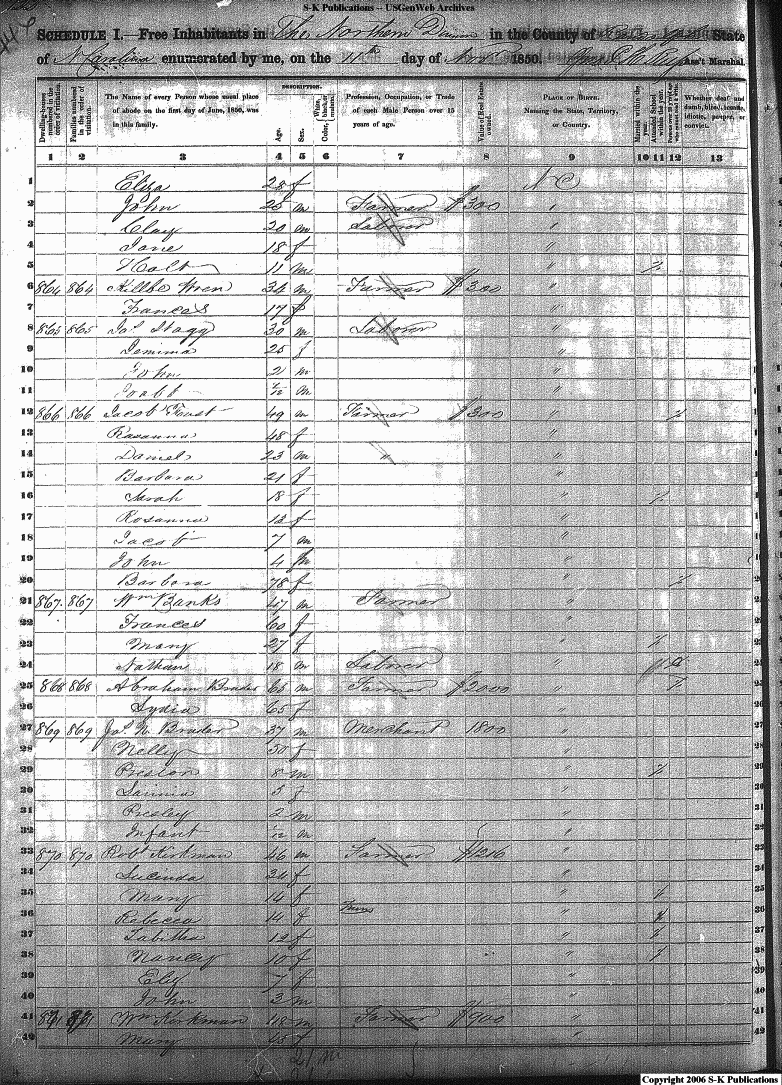 S-K Publications -- USGenWeb Archives
SCHEDULE I.—Free Inhabitants in The Northern Division in the County of State
of N Carolina enumerated by me, on the 11th day of Novr 1850. Ass't Marshal.
DESCRIPTION.
Dwelling-houses numbered in the order of visitation.
Families numbered in the order of visitation.
The Name of every Person whose usual place of abode on the first day of June, 1850, was in this family.
Age.
Sex.
White, black, or mulatto.
Color,
Profession, Occupation, or Trade of each Male Person over 15 years of age.
Value of Real Estate owned.
PLACE OF BIRTH. Naming the State, Territory, or Country.
Married within the year.
Attended School within the year.
Persons over 20 y'rs of age who cannot read & write.
Whether deaf and dumb, blind, insane, idiotic, pauper, or convict.
1 2 3 4 5 6 7 8 9 10 11 12 13
1 Eliza 28 f N C
2 John 25 m Farmer $300 "
3 Clay 20 m Laborer " 3
4 Jane 18 f " 4
5 Holt 11 m " / 5
6 864 864 Wren 34 m Farmer $300 " 6
7 Frances 17 f " 7
8 865 865 Jas Stagg 30 m Laborer " 8
9 Jemima 25 f "
10 John 2 m " 1
11 /12 m " 1
12 866 866 Jacob Foust 49 m Farmer $300 " / 1
13 Rosanna 48 f " 1
14 Daniel 23 m " " 1
15 Barbara 21 f " 1
16 Sarah 18 f " / 1
17 Rosanna 12 f " 1
18 Jacob 7 m " 1
19 John 4 m " 1
20 Barbara 78 f " / 2
21 867 867 Wm Banks 47 m Farmer " 2
22 Frances 60 f " 2
23 Mary 27 f " / 2
24 Nathan 18 m Laborer "
25 868 868 Abraham Brader 65 m Farmer $2000 " /
26 Lydia 65 f "
27 869 869 Jas N Brader 37 m Merchant 1800 "
28 Nelly 30 f " 28
29 Preston 8 m " / 29
30 f " 30
31 Presley 2 m " 31
32 Infant /12 m " 32
33 870 870 Robt Kirkman 46 m Farmer $1216 " 33
34 Lucinda 24 f " 34
35 Mary 14 f " / 35
36 Rebecca 14 f Twins " / 36
37 Tabitha 12 f " / 37
38 Nancy 10 f " / 38
39 Ely 7 f " 39
40 John 3 m " 40
41 871 871 Wm Kirkman 48 m Farmer $900 " 41
42 Mary 45 f " 42
21 m
Copyright 2006 S-K Publications